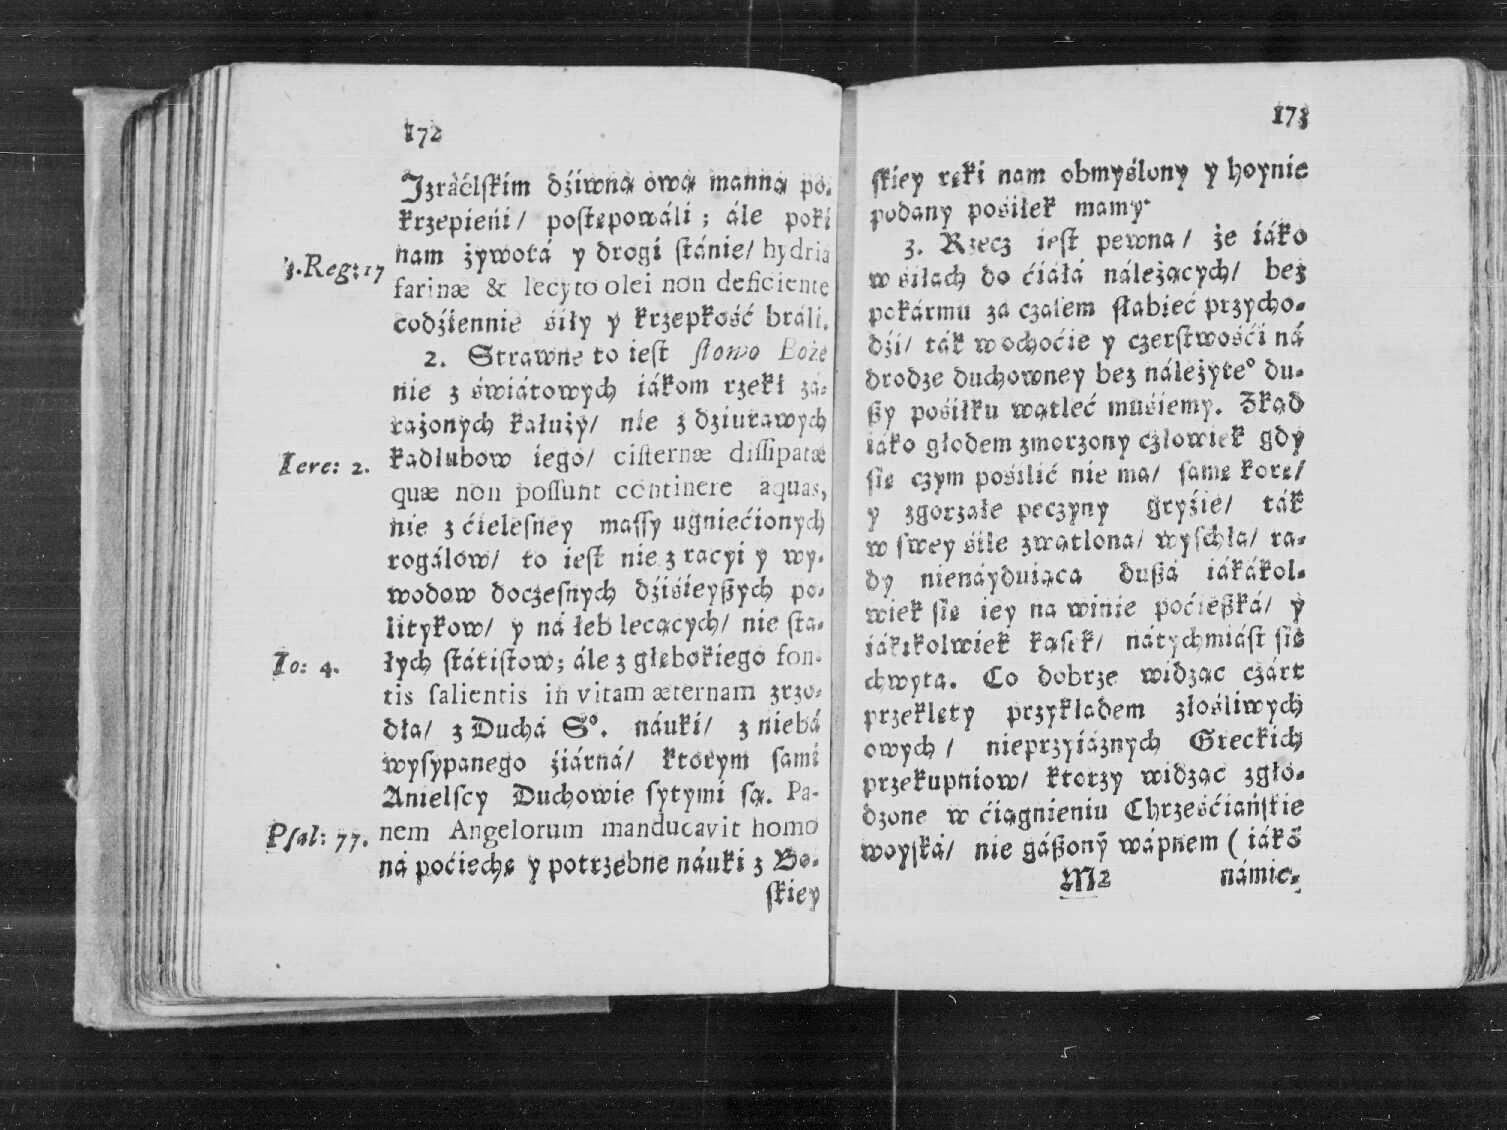 172
Jzráelskim dźiwną ową manną po-
krzepieni/ postępowáli; ále poki
nam żywotá y drogi stánie/ hydria
3. Reg: 17
farinæ & lecyto olei non deficiente
codźiennie siły y krzepkość bráli.
2. Strawne to iest słowo Boże
nie z świátowych iákom rzekł zá-
rażonych kałuży/ nie z dziurawych
Iere: 2.
kadłubow iego/ cisternæ dissipatæ
quæ non possunt continere aquas,
nie z ćielesney massy ugniećionych
rogálow/ to iest nie z racyi y wy-
wodow doczesnych dźisieyßych po-
litykow/ y ná łeb lecących/ nie sta-
Io: 4.
łych státistow; ále z głębokiego fon-
tis salientis in vitam æternam zrzo-
dła/ z Duchá S°. náuki/ z niebá
wysypanego źiárná/ ktorym sami
Anielscy Duchowie sytymi są. Pa-
Psal: 77.
nem Angelorum manducavit homo
ná poćiechę y potrzebne náuki z Bo-
skiey
173
skiey ręki nam obmyślony y hoynie
podany posiłek mamy.
3. Rzecz iest pewna/ że iáko
w siłach do ćiáłá náleżących/ bez
pokármu za czasem słabieć przycho-
dźi/ ták w ochoćie y czerstwośći ná
drodze duchowney bez náleżyte° du-
ßy posiłku wątleć musiemy. Zkąd
iako głodem zmorzony człowiek gdy
się czym posilić nie ma/ samę korę/
y zgorzałe peczyny gryźie/ ták
w swey sile zwątlona/ wyschła/ ra-
dy nienáyduiąca dußá iákákol-
wiek się iey na winie poćießká/ y
iákikolwiek kąsek/ nátychmiást się
chwyta. Co dobrze widząc czárt
przeklęty przykładem złośliwych
owych/ nieprzyiáznych Greckich
przekupniow/ ktorzy widząc zgło-
dzone w ćiągnieniu Chrześćiáńskie
woyská/ nie gáßonỹ wápnem ( iáko
M2
námie-